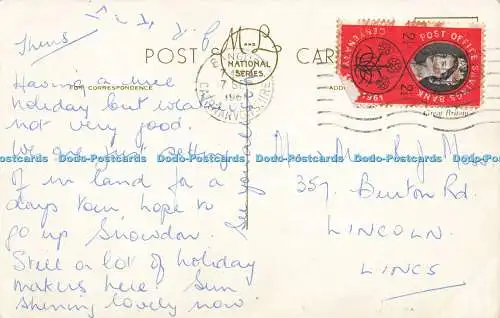 Thurs
POST CARD
M AND L
NATIONAL SERIES
FOR CORRESPONDENCE
Great Britain
POST OFFICE SAVINGS BANK
CENTENARY
1961
2½
CAERNARVONSHIRE
Having a nice
holiday but weather
not very good.
We are just setting
of in land for a
days tour hope to
go up Snowdon.
Still a lot of holiday
makers here. Sun
shining lovely now.
See you all
Mr
357, Burton Rd.
LINCOLN.
LINCS
Dodo-Postcards Dodo-Postcards Dodo-Postcards Dodo-Postcards